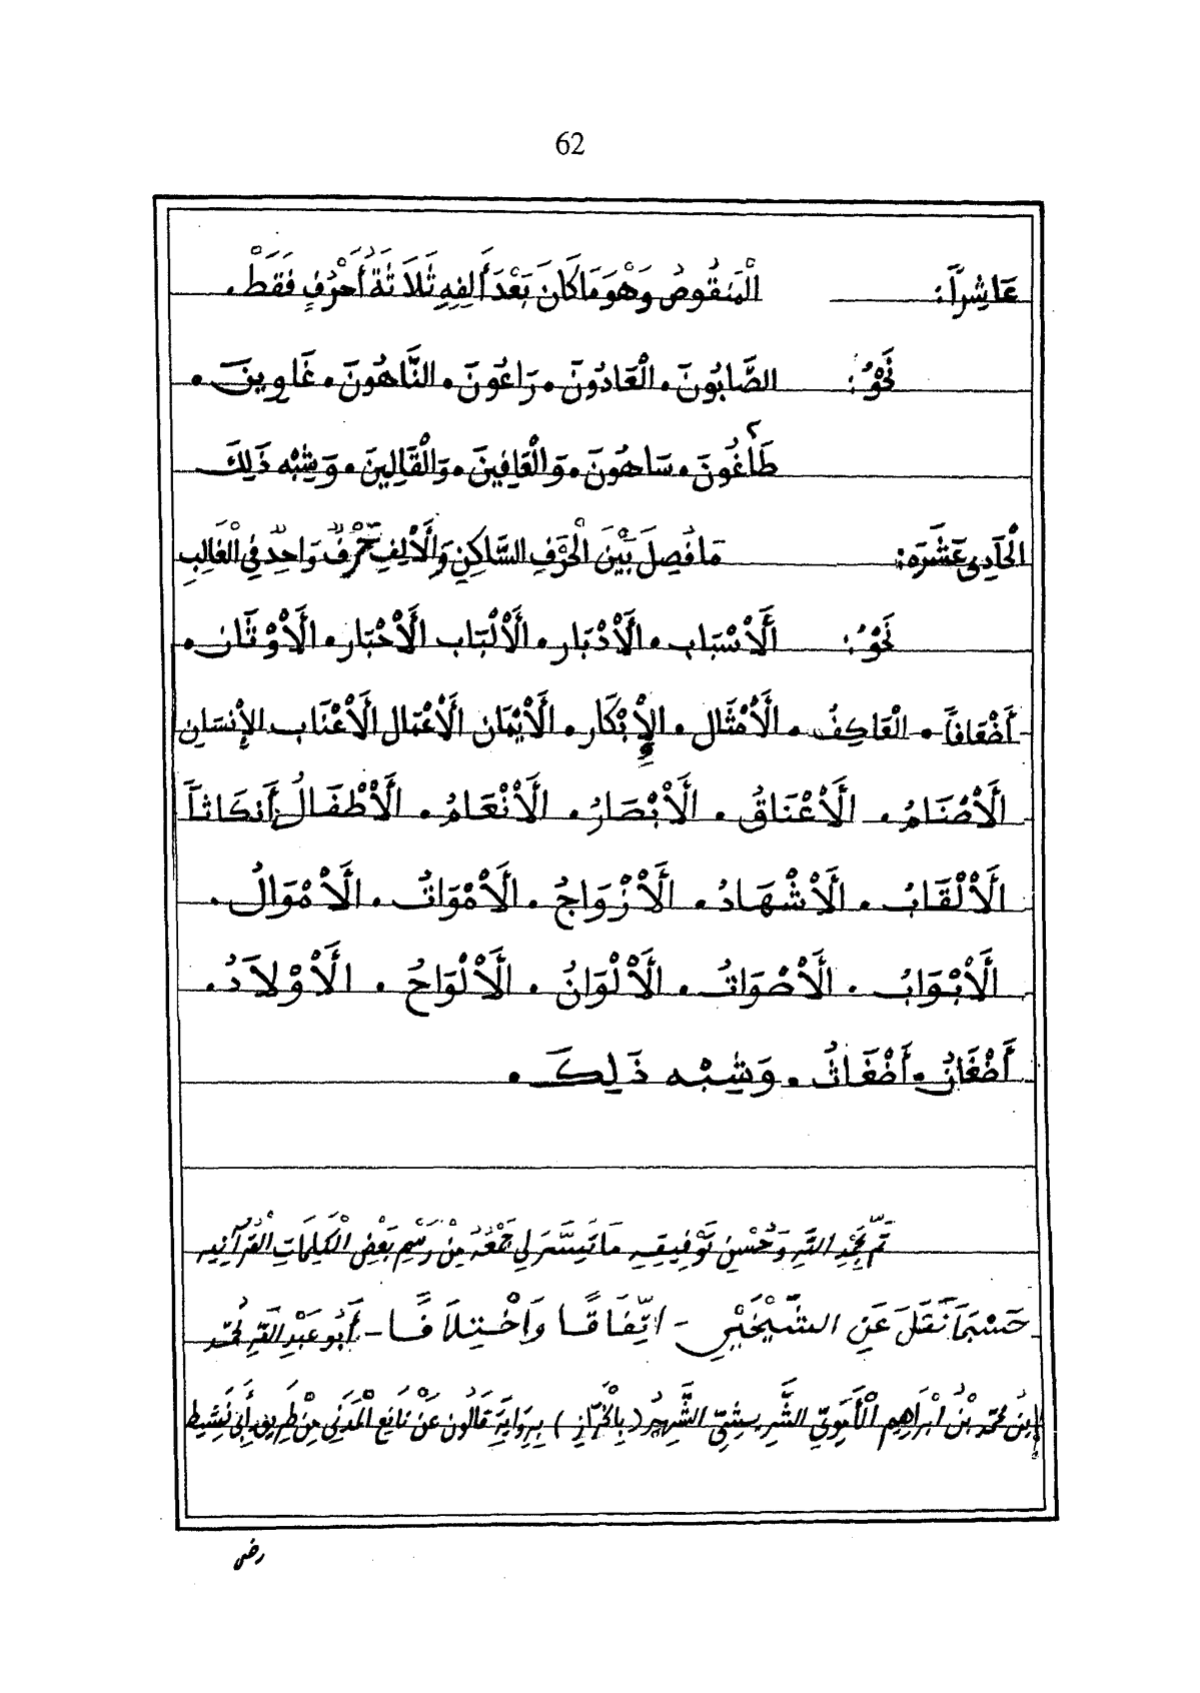 62
عَاشِراً: الْمَنقُوصُ وَهْوَ مَا كَانَ بَعْدَ أَلِفِهِ ثَلَاثَةُ أَحْرُفٍ فَقَطْ.
نَحْوُ: الصَّابُونَ. الْعَادُونَ. رَاعُونَ. النَّاهُونَ. غَاوِينَ.
طَاغُونَ. سَاهُونَ. وَالْعَافِينَ. وَالْقَالِينَ. وَشِبْه ذَلِكَ
الْحَادِى عَشَرَه: مَا فُصِلَ بَيْنَ الْحَرْفِ السَّاكِنِ وَالْأَلِفِ حَرْفٌ وَاحِدٌ فِي الْغَالِبِ
نَحْوُ: الْأَسْبَاب. الْأَدْبَار. الْأَلْبَاب الْأَحْبَار. الْأَوْثَان.
أَضْعَافاً. الْعَاكِفُ. الْأَمْثَال. الْإِبْكَار. الْأَيْمَان الْأَعْمَال الْأَعْنَاب الإنسَان
الْأَصْنَامُ. الْأَعْنَاقُ. الْأَبْصَارُ. الْأَنْعَامُ. الْأَطْفَالُ أَنكَاثاً
الْأَلْقَابُ. الْأَشْهَادُ. الْأَزْوَاجُ. الْأَمْوَاتُ. الْأَمْوَالُ.
الْأَبْوَابُ. الْأَصْوَاتُ. الْأَلْوَانُ. الْأَلْوَاحُ. الْأَوْلَادُ.
أَضْغَانُ. أَضْغَاثُ. وَشِبْه ذَلِكَ.
تَمَّ بِحَمْدِ اللَّهِ وَحُسْنِ تَوْفِيقِهِ مَا تَيَسَّرَ لِي جَمْعُهُ مِنْ رَسْمِ بَعْضِ الْكَلِمَاتِ الْقُرْآنِيه
حَسْبَمَا نَقَلَ عَنِ الشَّيْخَيْنِ - اتِّفَاقًا وَاخْتِلَافًا - أَبُو عَبْدِ اللَّهِ مُحَمَّد
ابنُ مُحَمَّد بْنُ ابْرَاهِيم الْأُمَوِيّ الشَّرِيشِيّ الشَّهِيرُ (بِالْخَرَّازِ) بِرِوَايَةِ قَالُون عَنْ نَافِع الْمَدَنِي مِنْ طَرِيقِ أَبِي نَشِيط
رضى